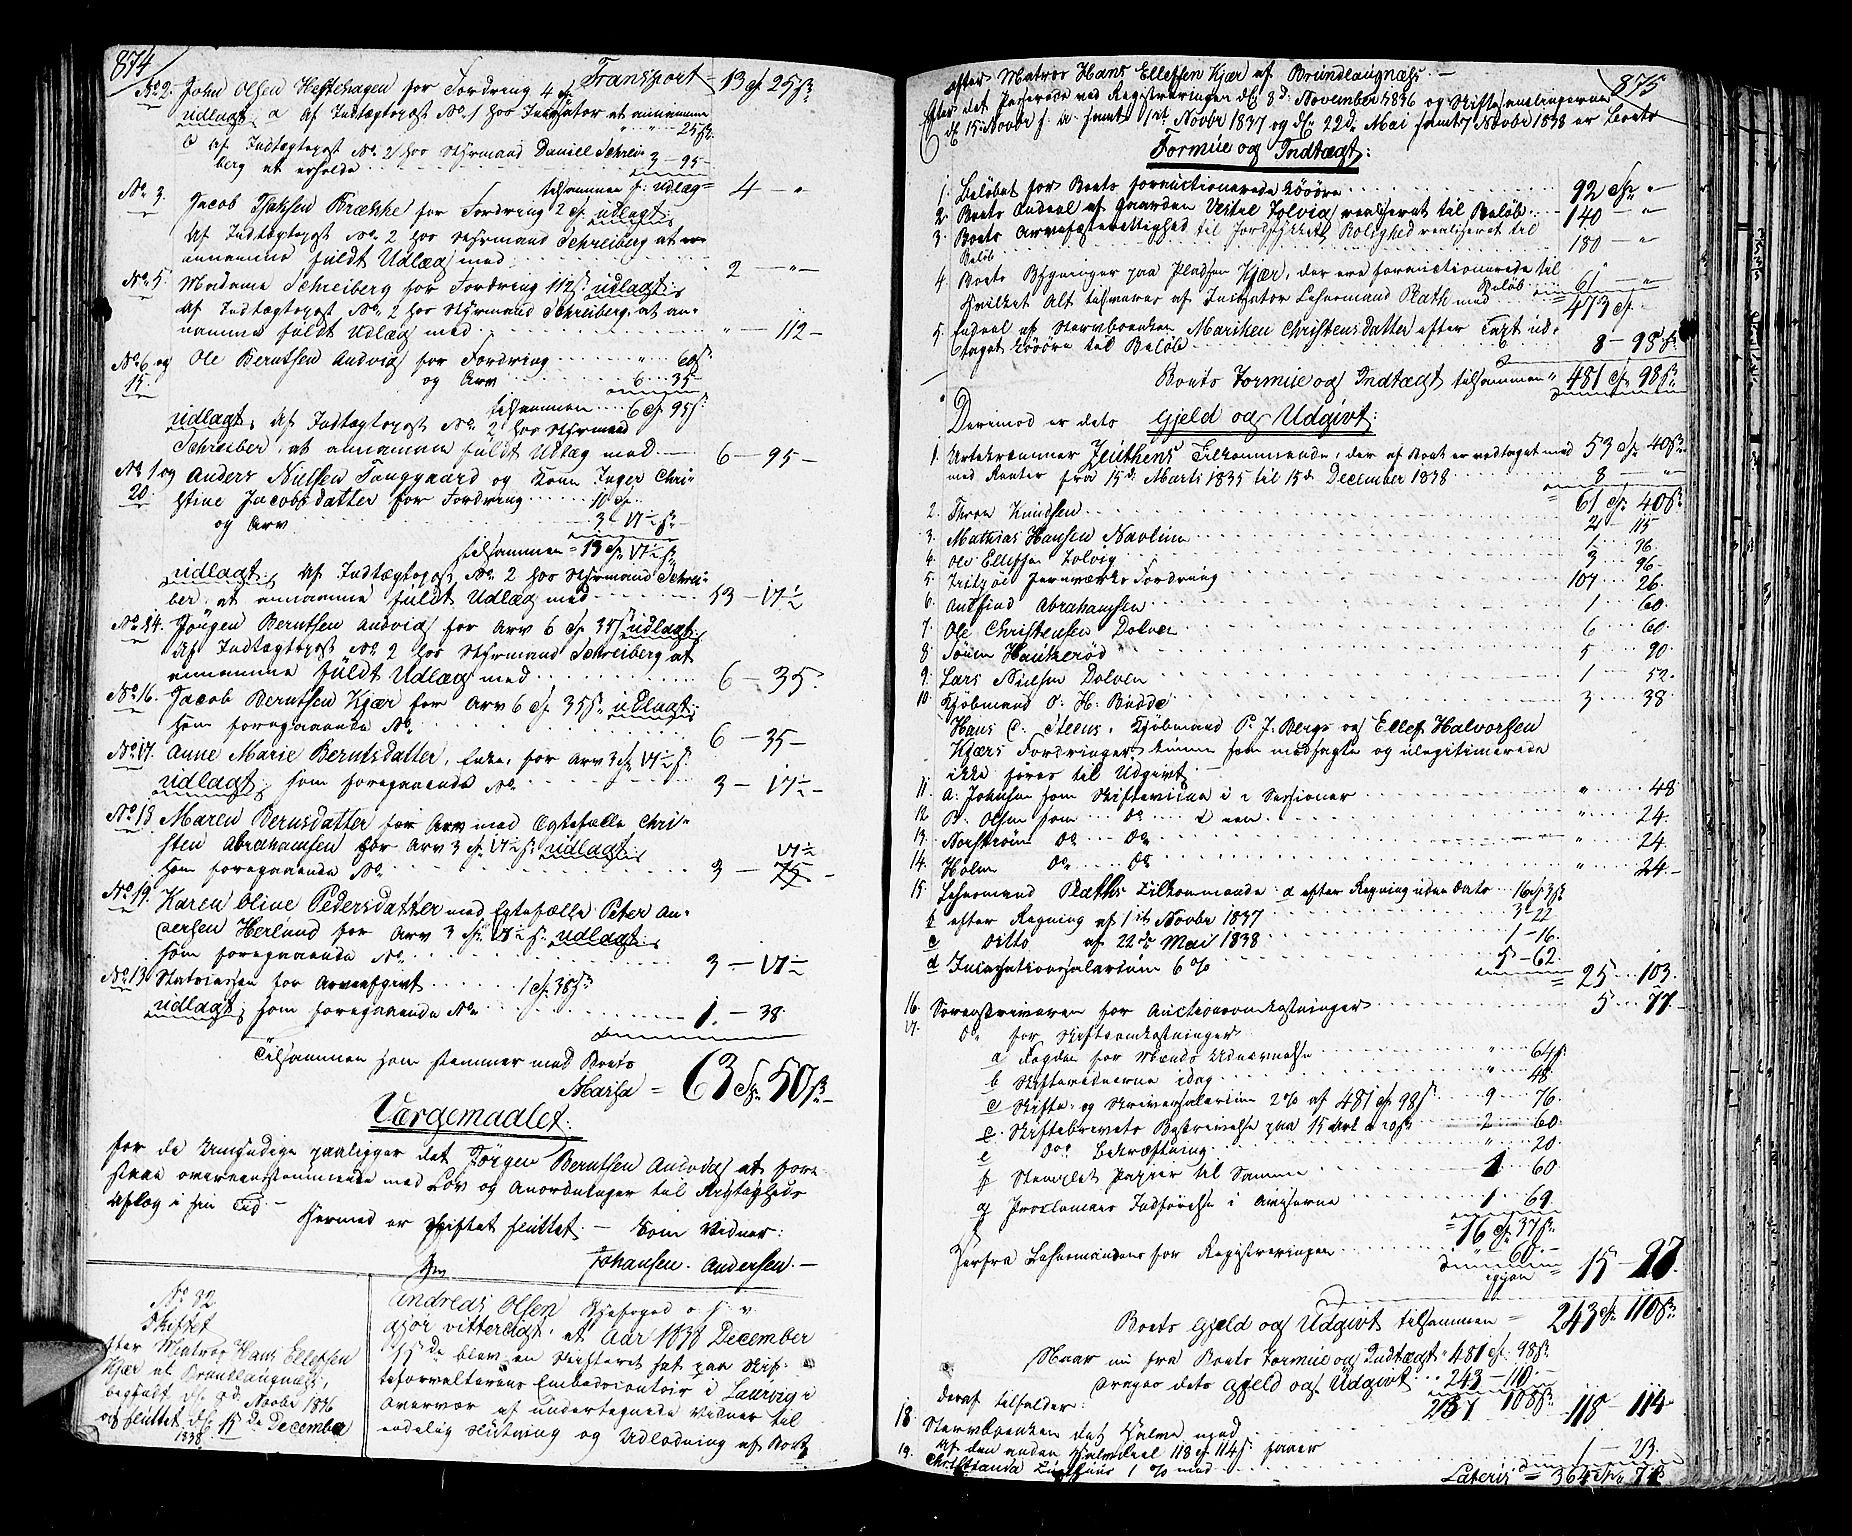 874
Transport = 13 sp 25 ß
No 2. John Olsen Hestehagen for Fordring 4 sp
udlagt, a af Indtægtspost No 1 hos Incasator at annamme
25 ß
b af Indtægtspost No 2 hos Styrmand Daniel Schrei-
berg at erholde 3 - 95 -
tilsammen f: udlæg = 4 - "
No 3. Jacob Isaksen Brække for Fordring 2 sp udlagt;
Af Indtægtspost No 2 hos Styrmand Schreiberg at an-
namme fuldt Udlæg med 2 - " -
No 5. Madame Schreiberg for Fordring 112 ß udlagt;
Af Indtægtspost No 2 hos Styrmand Schreiberg, at an-
namme fuldt Udlæg med " - 112 -
No 6 og 15. Ole Berntsen Andvig for Fordring " 60 ß
og Arv 6 35 -
tilsammen 6 sp 95 ß
udlagt; Af Indtægtspost No 2 hos Styrmand
Schreiber, at annamme fuldt Udlæg med 6 - 95 -
No 1 og 20. Anders Nielsen Fonggaard og Kone Inger Chri-
stine Jacobsdatter for Fordring 10 sp
og Arv 3 - 17½ ß
tilsammen = 13 sp 17½ ß
udlagt; Af Indtægtspost No 2 hos Styrmand Schrei-
ber, at annamme fuldt Udlæg med 13 - 17½
No 14. Jörgen Berntsen Andvig for Arv 6 sp 35 ß udlagt;
Af Indtægtspost No 2 hos Styrmand Schreiberg at
annamme fuldt Udlæg med 6 - 35.
No 16. Jacob Berntsen Kjær for Arv 6 sp 35 ß udlagt;
som foregaaende No 6 - 35 -
No 17. Anne Marie Berntsdatter, Enke, for Arv 3 sp 17½ ß
udlagt; som foregaaende No 3 - 17½ -
No 18. Maren Berntsdatter for Arv med Egtefælle Chri-
sten Abrahamsen for Arv 3 sp 17½ ß udlagt;
som foregaaende No 3 - 17½
No 19. Karen Oline Pedersdatter med Egtefælle Peter An-
dersen Herlund for Arv 3 sp 17½ ß udlagt;
som foregaaende No 3 - 17½
No 13. Statscassen for Arveafgivt 1 sp 38 ß
udlagt; som foregaaende No 1. - 38.
Tilsammen som stemmer med Boets
Massa = 63 sp 50 ß -
Værgemaalet:
for de Umyndige paaligger det Jørgen Berntsen Andvig at fore-
staae overeensstemmende med Lov og Anordninger til Rigtigheds
Aflæg i sin Tid. -
Hermed er Skiftet sluttet. - Som Vidner:
Johansen. Andersen. -
No 82.
Skiftet
efter Matros Hans Ellefsen
Kjær af Brunlaugnæs,
begyndt d. 8d Novbr 1836
og sluttet d. 15de December
1838.
Andreas Olsen Byefoged o. s. v.
gjør vitterligt, at Aar 1838 December
15de blev en Skifteret sat paa Skif-
teforvalterens Embedscontoir i Laurvig i
Overvær af undertegnede Vidner til
endelig Slutning og Udlodning af Boet
875
efter Matros Hans Ellefsen Kjær af Brunlaugnæs. -
Efter det Passerede ved Registreringen d. 8d November 1836 og Skiftesamlingerne
d. 15 Novbr s. A. samt 1ste Novbr 1837 og d. 22de Mai samt 7 Novbr 1838 er Boets
Formue og Indtægt:
1. Beløbet for Boets forauctionerede Løsøre 92 sp "
2. Boets Andeel af Gaarden Vestre Tolvig realiseret til Beløb 140 - "
3. Boets Arvefæsterettighed til Jordstykket Rolighed realiseret til
Beløb 180 - "
4. Boets Bygninger paa Pladsen Kjær, der ere forauctionerede til
Beløb 61 - "
Hvilket Alt tilsvares af Incasator Lehnsmand Plath med 473 sp
5. Andeel af Stervboenken Mariken Christensdatter efter Taxt ud-
taget Løsøre til Beløb 8 - 98 ß
Boets Formue og Indtægt tilsammen = 481 sp 98 ß
Derimod er dets Gjeld og Udgivt:
1. Urtekræmmer Zeuthens Tilkommende, der af Boet er vedtaget med 53 sp 40 ß
med Renter fra 15d Marts 1835 til 15d December 1838 8 "
= 61 sp 40 ß
2. Thron Knudsen 2 115
3. Mathias Hansen Navlum 1 96
4. Ole Ellefsen Tolvig 3 96
5. Fritzöe Jernværks Fordring 107 26
6. Andfind Abrahamsen 1 60
7. Ole Christensen Dolven 6 60
8. Søren Haukerød 5 90
9. Lars Nielsen Dolven 1 52
10. Kjøbmand O. H. Budde 3 38
Hans C. Steens, Kjøbmand P. J. Bergs og Ellef Halvorsen
Kjærs Fordringer kunne som modsagte og ulegitimerede
ikke føres til Udgivt.
11. A. Johnsen som Skiftevidne i 2 Sessioner " 48
12. B. Olsen som do i een " 24.
13. Norström do do " 24
14. Holm do do " 24
15. Lehnsmand Plaths Tilkommende a efter Regning uden Dato 16 sp 3 ß
b efter Regning af 1ste Novbr 1837 3 - 22
c ditto af 22de Mai 1838 1 - 16.
d Incasationssalarium 6% 5 - 62
= 25 103.
16. Sorenskriveren for Auctionsomkostninger 5 77
17. do for Skifteomkostninger
a Fogden for Mænds Udnævnelse " 64 ß
b Skiftevidnerne idag " 48
c Skifte- og Skriversalarium 2% af 481 sp 98 ß 9 76
d Skiftebrevets Beskrivelse paa 15 Ark a 20 ß 2 60
e Dos Bekræftning " 20
f Stemplet Papier til Samme 1 60
g Proclamaes Indførelse i Aviserne 1 69
= 16 sp 37 ß
Herfra Lehnsmandens for Registreringen " 60. -
igjen = 15 - 97.
Boets Gjeld og Udgivt tilsammen = 243 sp 110 ß
Naar nu fra Boets Formue og Indtægt 481 sp 98 ß
drages dets Gjeld og Udgivt 243 - 110 -
237 108 ß
deraf tilfalder:
18. Stervboenken det Halve med 118 - 114 -
19. Af den anden Halvdeel 118 sp 114 ß faaer
Christiania Tugthuus 1% med 1 - 23.
Lateris = 364 sp 7 ß